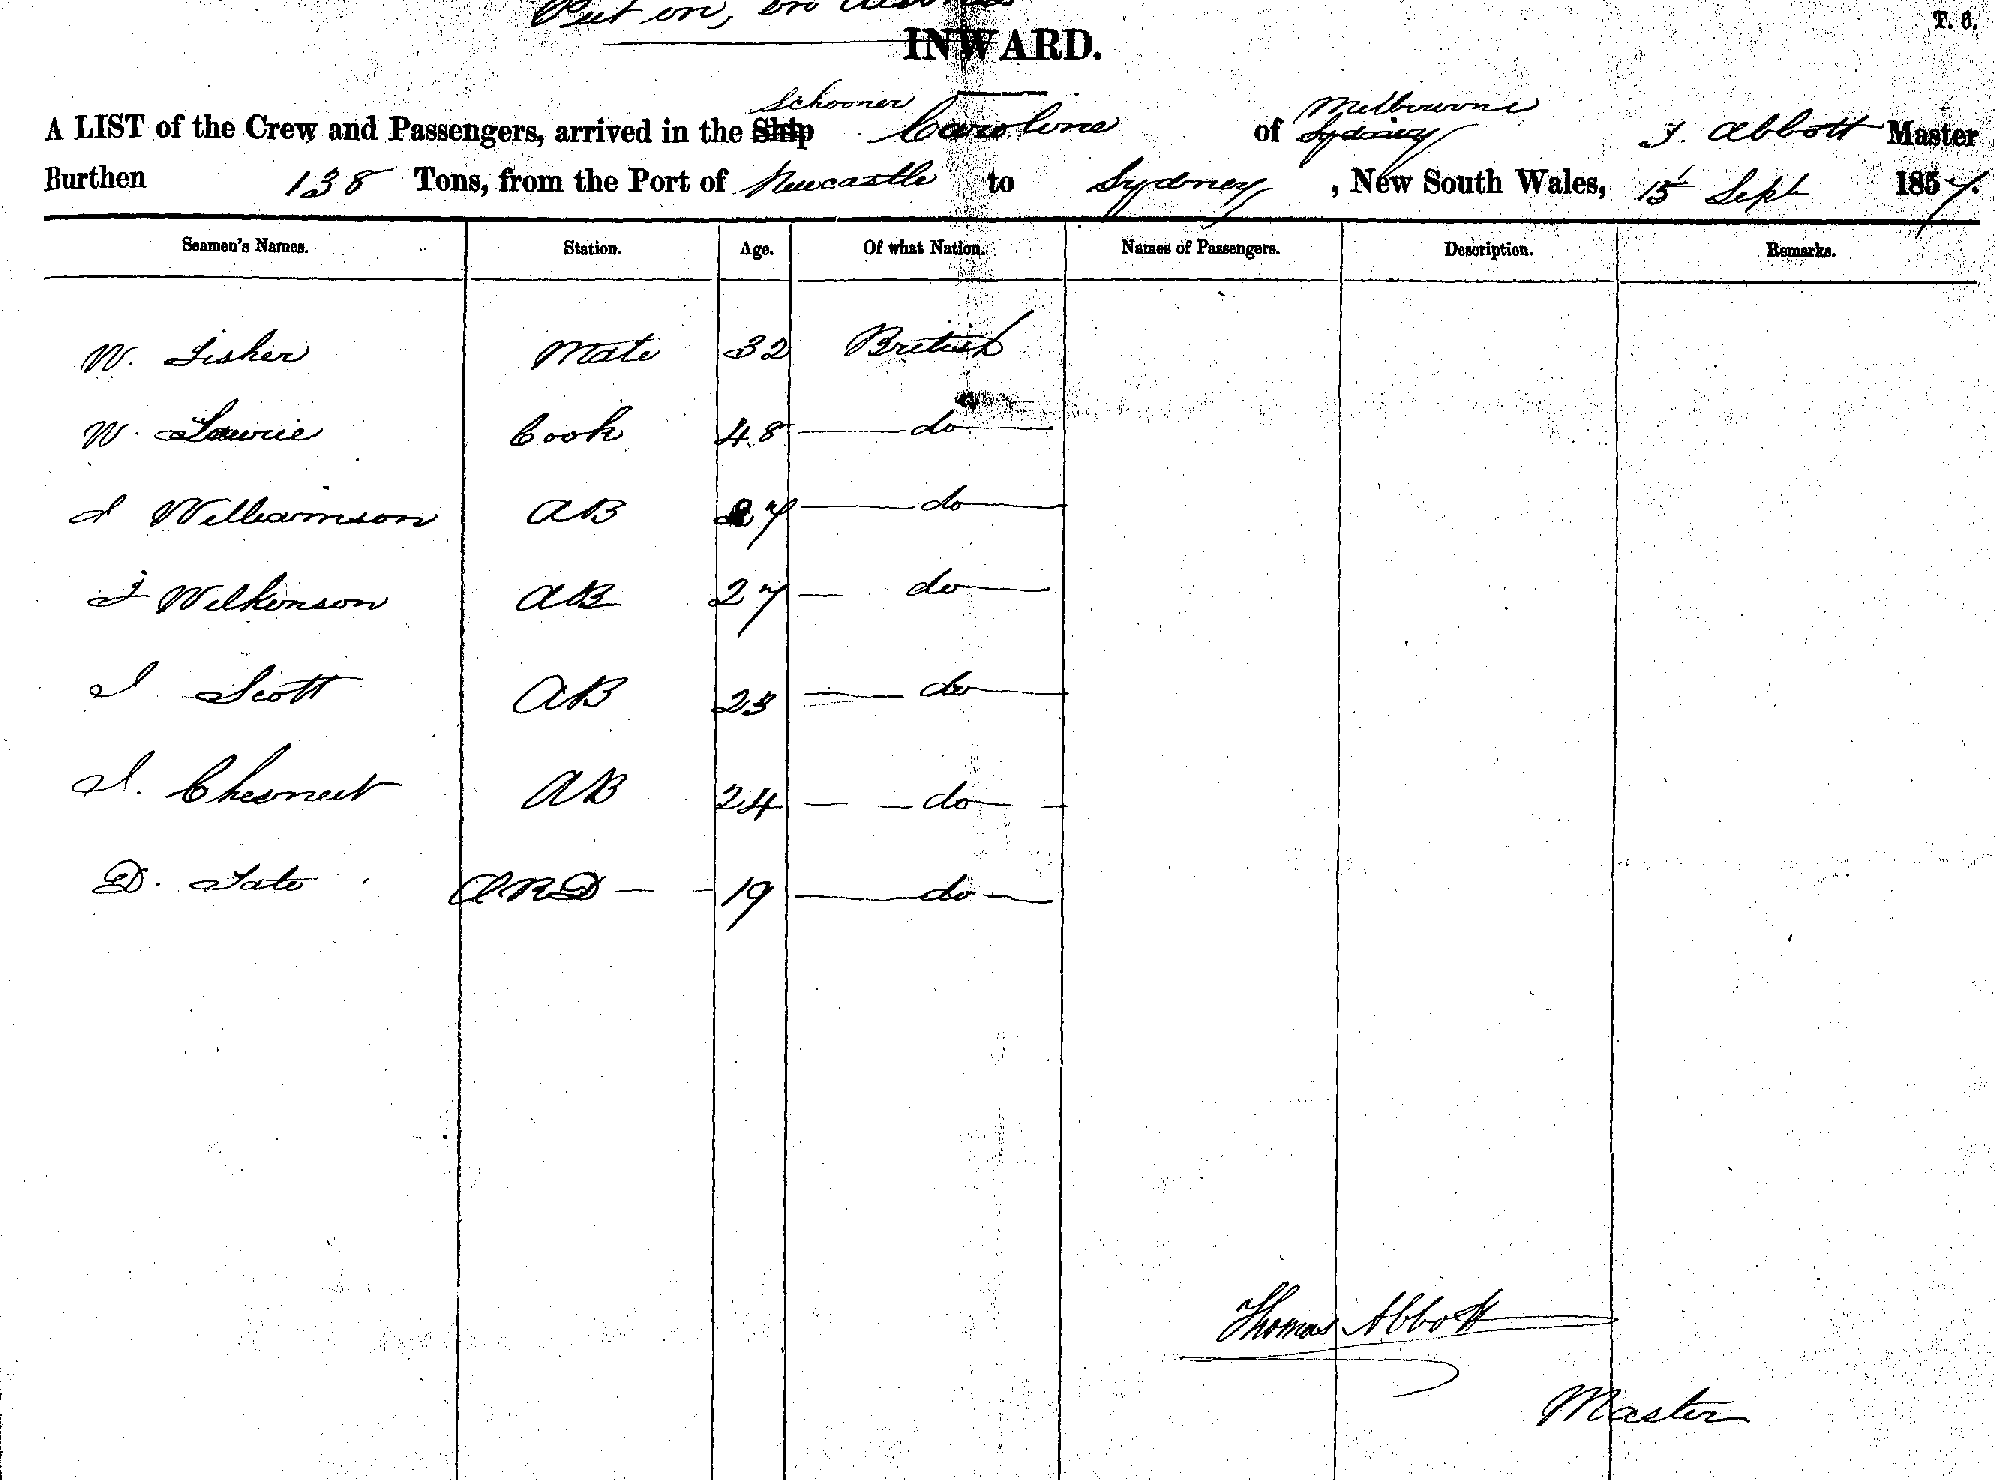 Put on, on
T. 6.
INWARD.
Schooner Melbourne
A LIST of the Crew and Passengers, arrived in the Ship Caroline of Sydney T. Abbott Master
Burthen 138 Tons, from the Port of Newcastle to Sydney, New South Wales, 15 Sept 1857.
Seamen's Names. Station. Age. Of what Nation. Names of Passengers. Description. Remarks.
W. Fisher Mate 32 British
W. Lawrie Cook 48 do
J Williamson AB 27 do
J Wilkinson AB 27 do
J. Scott AB 23 do
J. Chesnent AB 24 do
D. Tate 19 do
Thomas Abbott
Master